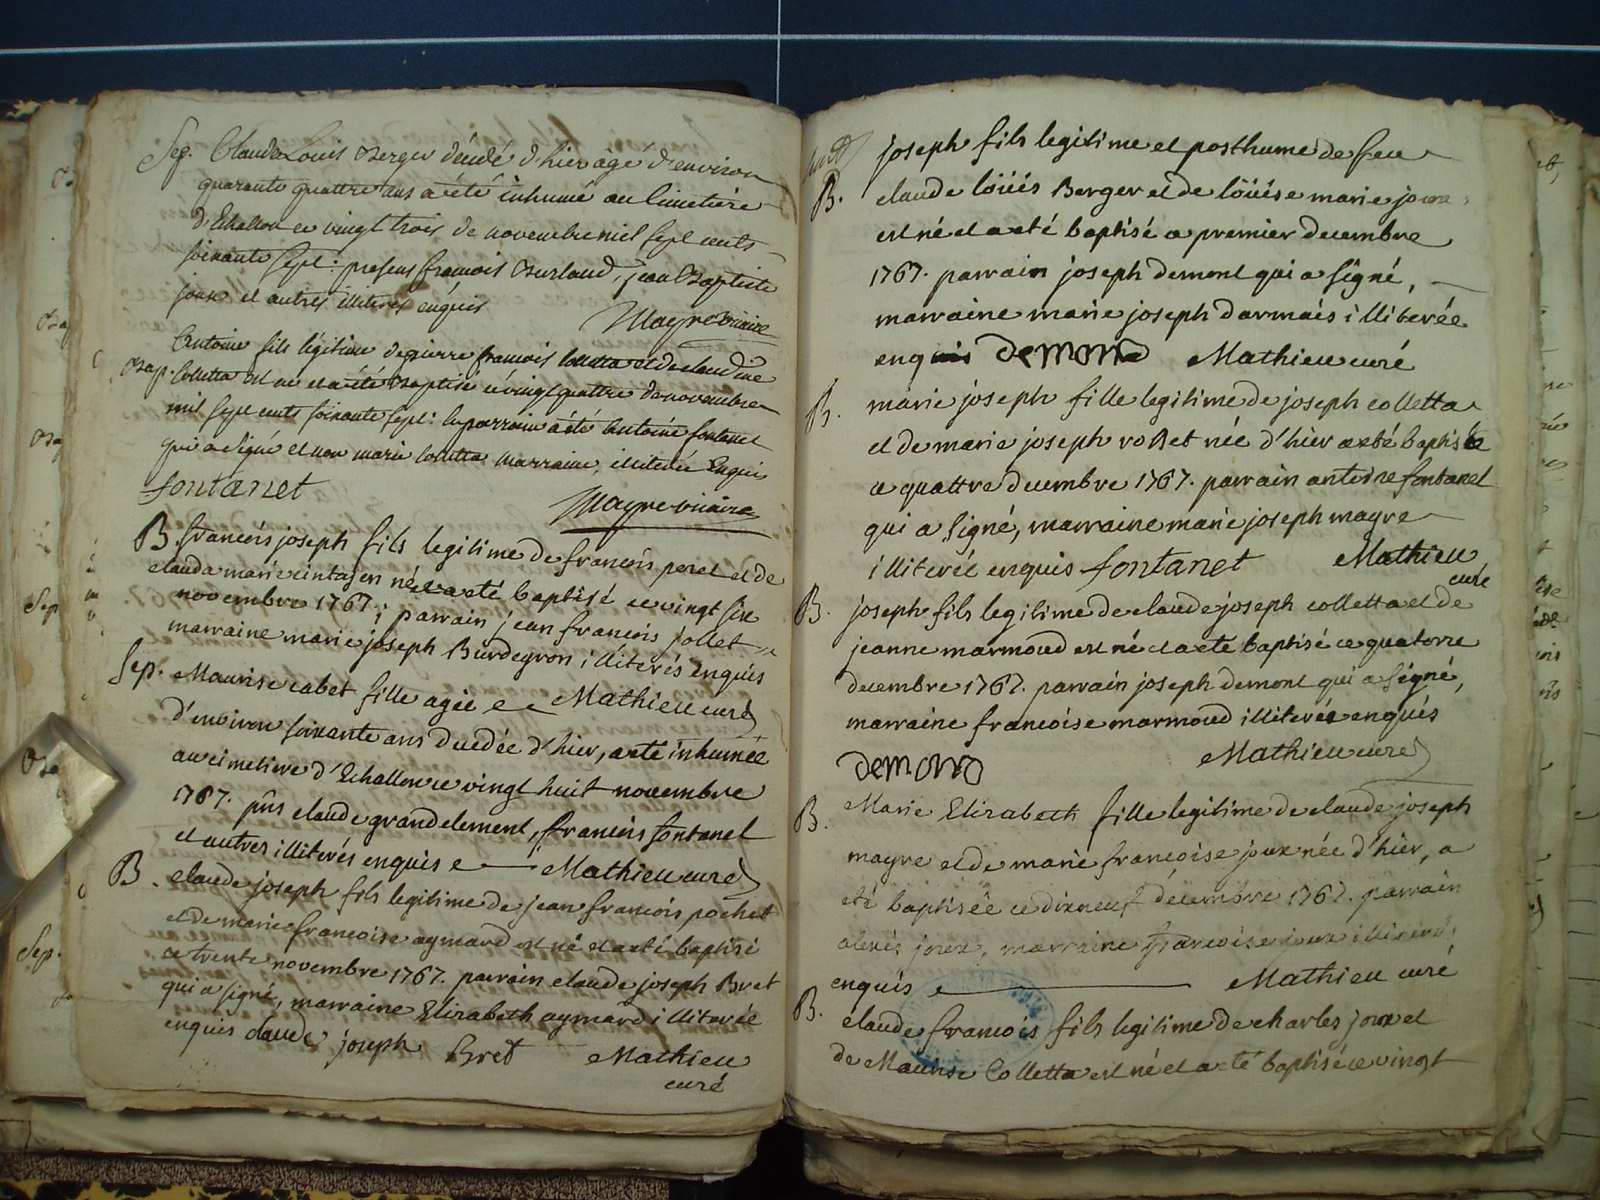 Sep. Claude Louis Berger décédé d'hier âgé d'environ
quarante quattre ans a été inhumé au Cimetière
d'Echallon ce vingt trois de novembre mil sept cents
soixante sept: presens francois Burlaud, jean Baptiste
joux et autres illiteres enquis
Mayre vicaire
Bap. Antoine fils légitime de pierre francois Colletta et de claudine
Colletta est né et a été Baptisé ce vingt quattre de novembre
mil sept cents soixante sept: le parrain a été Antoine fontanet
qui a signé et non marie Colletta marraine illiterée Enquis
fontanet
Mayre vicaire
B. francois joseph fils legitime de francois peret et de
clauda marie né et a eté baptisé ce vingt six
novembre 1767; parrain jean francois jollet
marraine marie joseph Burdeyron illiterés enquis
Mathieu curé
Sep. Maurise cabet fille agée
d'environ soixante ans décedée d'hier, a eté inhumée
au cimetiere d'Echallon ce vingt huit novembre
1767. pñs claude grandclement, francois fontanet
et autres illiterés enquis Mathieu curé
B. claude joseph fils legitime de jean francois pochet
et de marie francoise aymard est né et a eté baptisé
ce trente novembre 1767. parrain claude joseph Bret
qui a signé, marraine Elizabeth aymard illiterée
enquis claude joseph bret Mathieu
curé
joseph fils legitime et posthume de feu
B. claude löüis Berger et de löüise marie joux
est né et a eté baptisé ce premier decembre
1767. parrain joseph demont qui a signé,
marraine marie joseph darmais illiterée
enquis demond Mathieu curé
B. marie joseph fille legitime de joseph colletta
et de marie joseph rosset née d'hier a eté baptisée
ce quattre decembre 1767. parrain antoine fontanet
qui a signé, marraine marie joseph mayre
illiterée enquis fontanet Mathieu
curé
B. joseph fils legitime de claude joseph colletta et de
jeanne marmoud est né et a eté baptisé ce quatorze
decembre 1767. parrain joseph demont qui a signé,
marraine francoise marmoud illiterés enquis
demond Mathieu curé
B. Marie Elizabeth fille legitime de claude joseph
mayre et de marie francoise joux née d'hier, a
eté baptisée ce dixneuf décembre 1767. parrain
alexis joux, marraine francoise joux illiterés
enquis Mathieu curé
B. claude francois fils legitime de charles joux et
de Maurise Colletta est né et a eté baptisé ce vingt